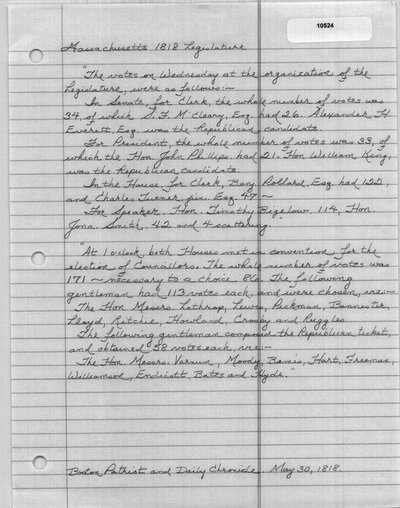 10524
Massachusetts 1818 Legislature
"The votes on Wednesday at the organization of the
Legislature, were as follows:-
In Senate, for Clerk, the whole number of votes was
34, of which S. F. McCleary, Esq. had 26. Alexander H.
Everett, Esq. was the Republican candidate.
For President, the whole number of votes was 33, of
which the Hon. John Phillips had 21. Hon William King,
was the Republican candidate.
In the House for Clerk, Benj. Pollard, Esq. had 122,
and Charles Turner, jun. Esq. 47 ~
For Speaker, Hon. Timothy Bigelow, 114, Hon.
Jona. Smith, 42 and 4 scattering.
"At 1 o'clock both Houses met in convention for the
election of Councillors. The whole number of votes was
171 ~ necessary to a choice 86. The following
gentleman had 113 votes each, and were chosen, viz:-
The Hon Messrs. Lathrop, Lewis, Parkman, Bannister,
Lloyd, Ritchie, Howland, Crosby and Ruggles.
The following gentlemen composed the Republican ticket,
and obtained 58 votes each, viz:-
The Hon Messrs. Varnum, Moody, Bemis, Hart, Freeman,
Williamson, Endicott, Bates and Hyde."
Boston Patriot and Daily Chronicle. May 30, 1818.